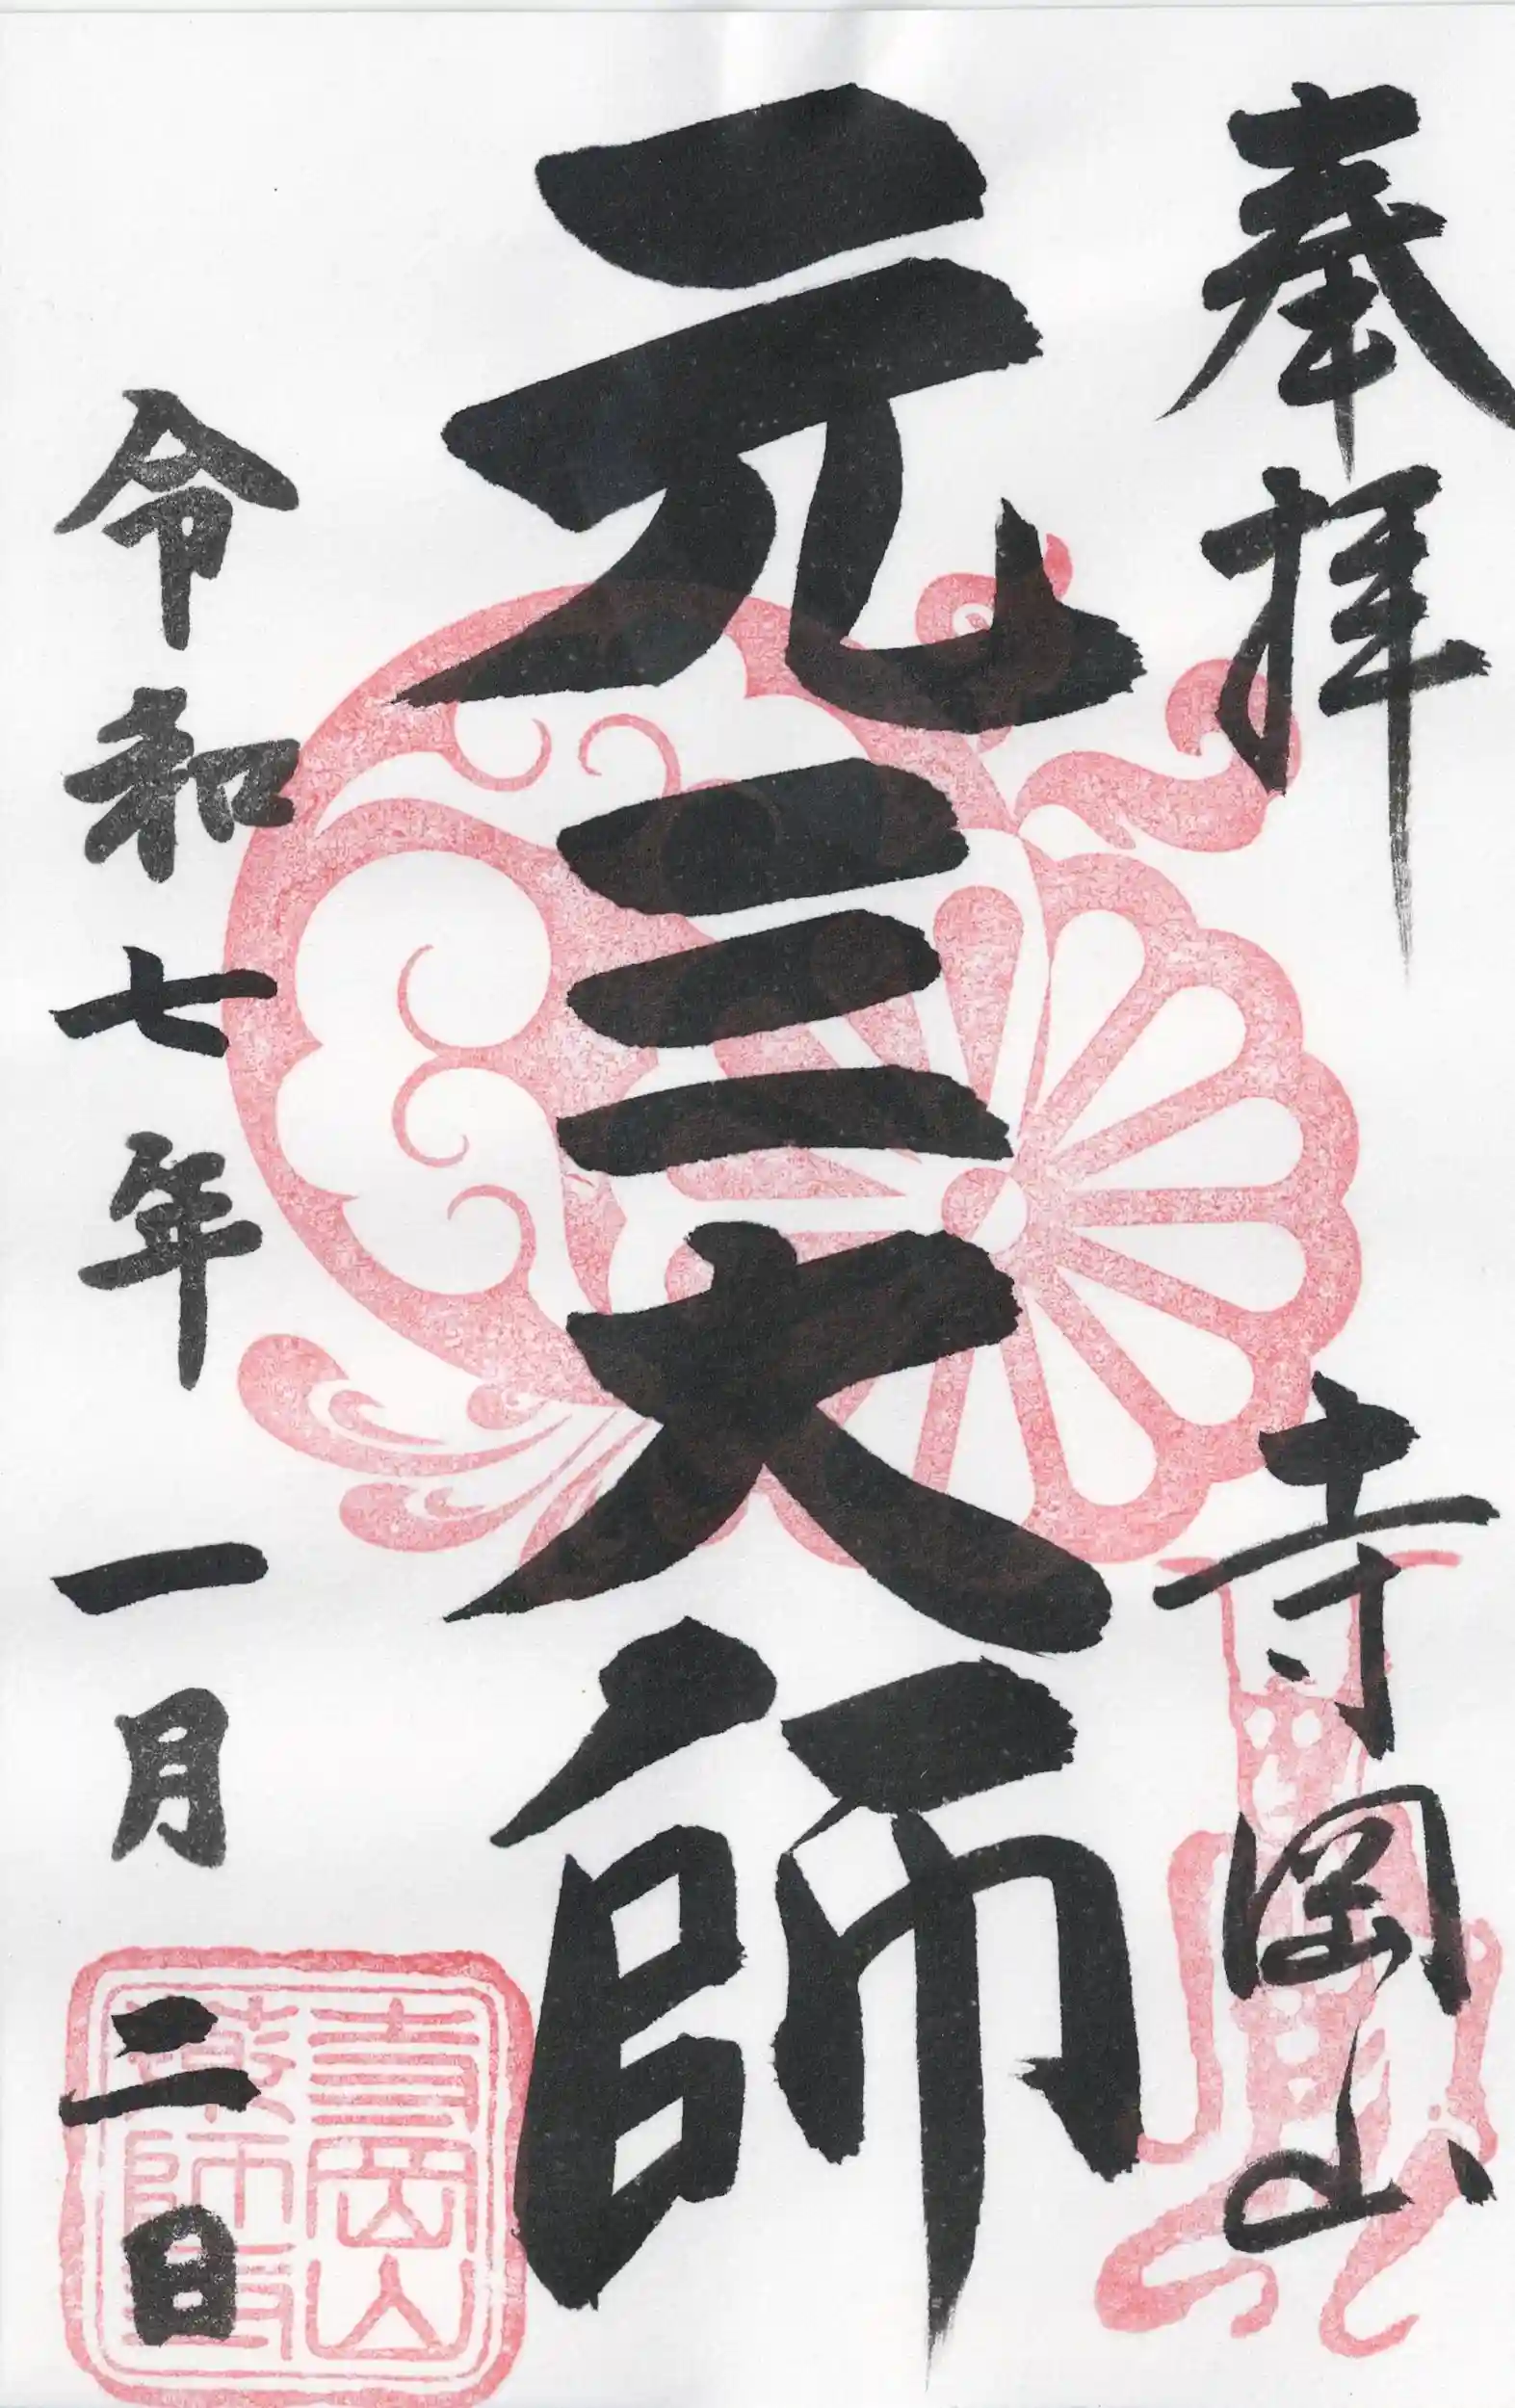 奉拝 寺岡山
元三大師
令和七年一月二日
寺岡山
薬師寺